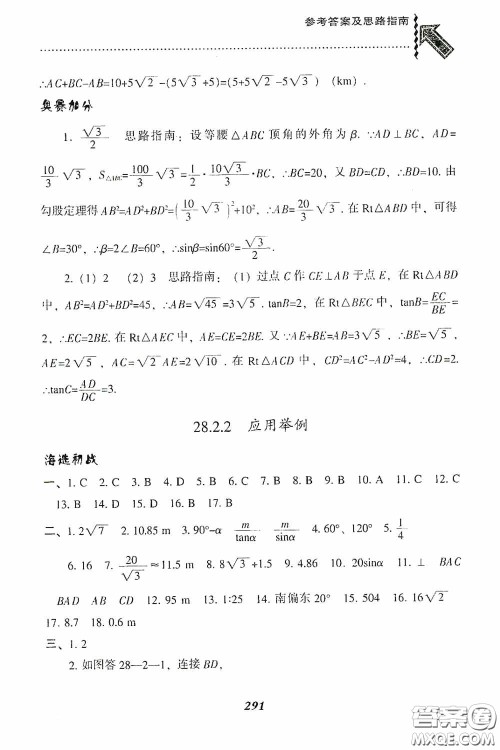 参考答案及思路指南
∴AC+BC-AB=10+5√2-(5√3+5)=(5+5√2-5√3) (km).
奥赛加分
1. √3/2 思路指南：设等腰△ABC顶角的外角为β. ∵AD⊥BC, AD=
10/3 √3, S△ABC=100/3 √3=1/2·10√3/3·BC, ∴BC=20, 又BD=CD, ∴BD=10. 由
勾股定理得AB²=AD²+BD²=(10/3 √3)²+10², ∴AB=20/3 √3. 在Rt△ABD中，可得
∠B=30°, ∴β=2∠B=60°, ∴sinβ=sin60°=√3/2.
2. (1) 2 (2) 3 思路指南：(1) 过点C作CE⊥AB于点E, 在Rt△ABD
中，AB²=AD²+BD²=45, ∴AB=√45=3√5. tanB=2, 在Rt△BEC中，tanB=EC/BE=
2, ∴EC=2BE. 在Rt△AEC中，AE=CE=2BE. 又∵AE+BE=AB=3√5, ∴BE=√5,
AE=2√5, AC=√2 AE=2√10. 在Rt△ACD中，CD²=AC²-AD²=4, ∴CD=2.
∴tanC=AD/DC=3.
28.2.2 应用举例
海选初战
一、1. C 2. C 3. C 4. C 5. C 6. C 7. B 8. B 9. B 10. A 11. C 12. C
13. B 14. D 15. D 16. D 17. B
二、1. 2√7 2. 10.85 m 3. 90°-α m/tanα m/sinα 4. 60°, 120° 5. 1/4
6. 16 7. 20/√3≈11.5 m 8. 8√3+1.5 9. 4.86 10. 20sinα 11. ⊥ BAC
BAD AB CD 12. 95 m 13. 1∶25 14. 南偏东20° 15. 504 16. 16√2
17. 8.7 18. 0.6 m
三、1. 2
2. 如图答28—2—1, 连接BD,
291
答案圈
MXQE.COM